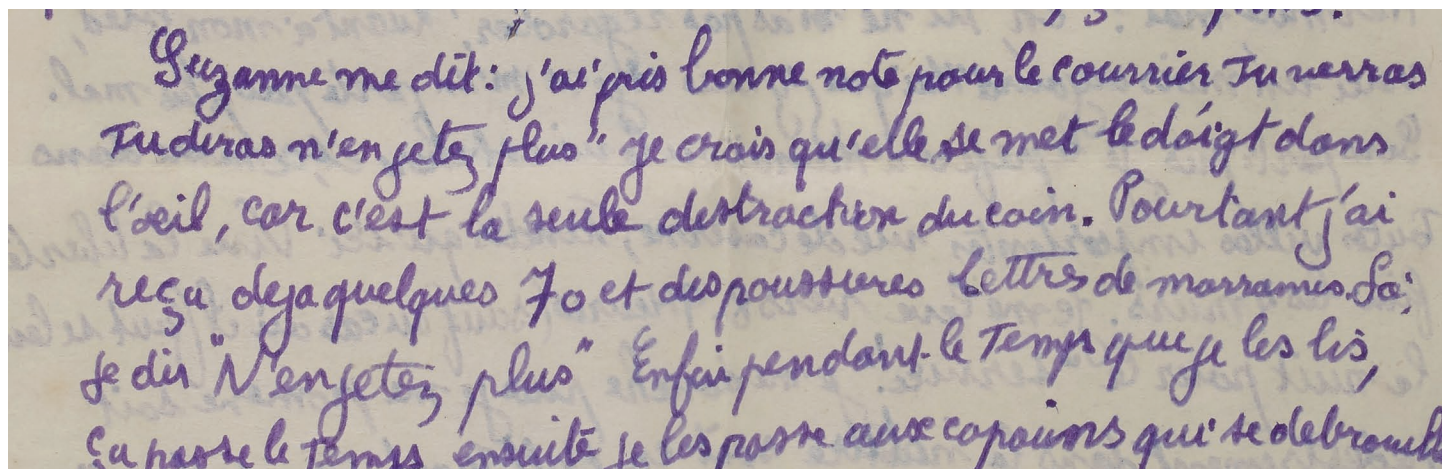 Suzanne me dit : j'ai pris bonne note pour le courrier Tu verras
Tu diras n'en jetez plus" je crois qu'elle se met le doigt dans
l'œil, car c'est la seule distraction du coin. Pourtant j'ai
reçu deja quelques 70 et des poussieres lettres de marraines.
je dis "N'en jetez plus" Enfin pendant le Temps que je les lis,
ça passe le Temps ensuite je les passe aux copains qui se debrouill